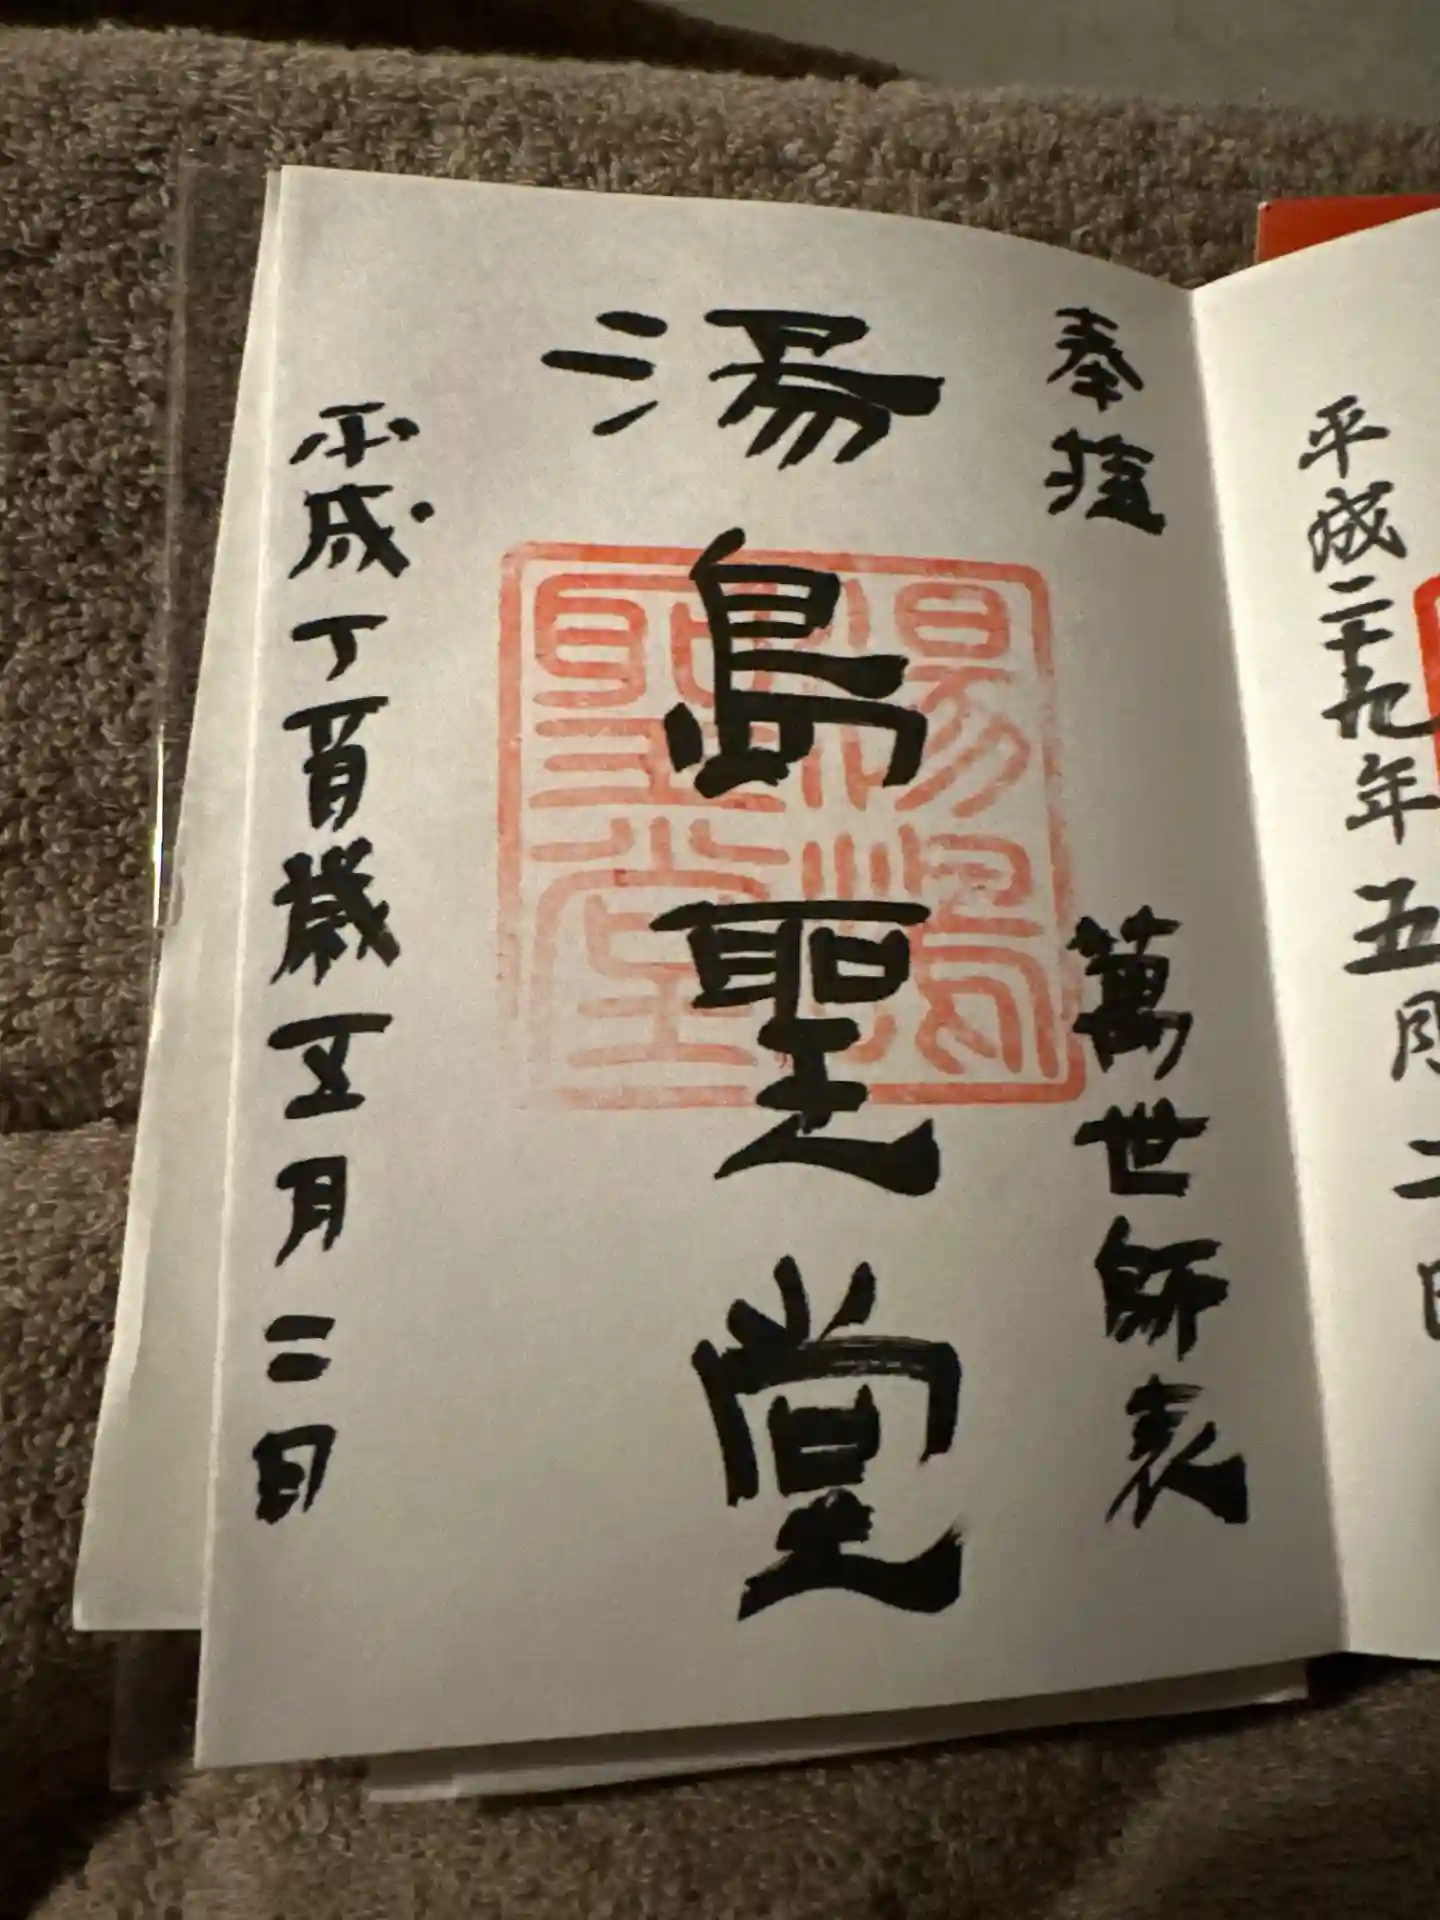 平成二十九年五月二日
奉
萬世師表
湯島聖堂
湯島聖堂
平成丁酉歳五月二日